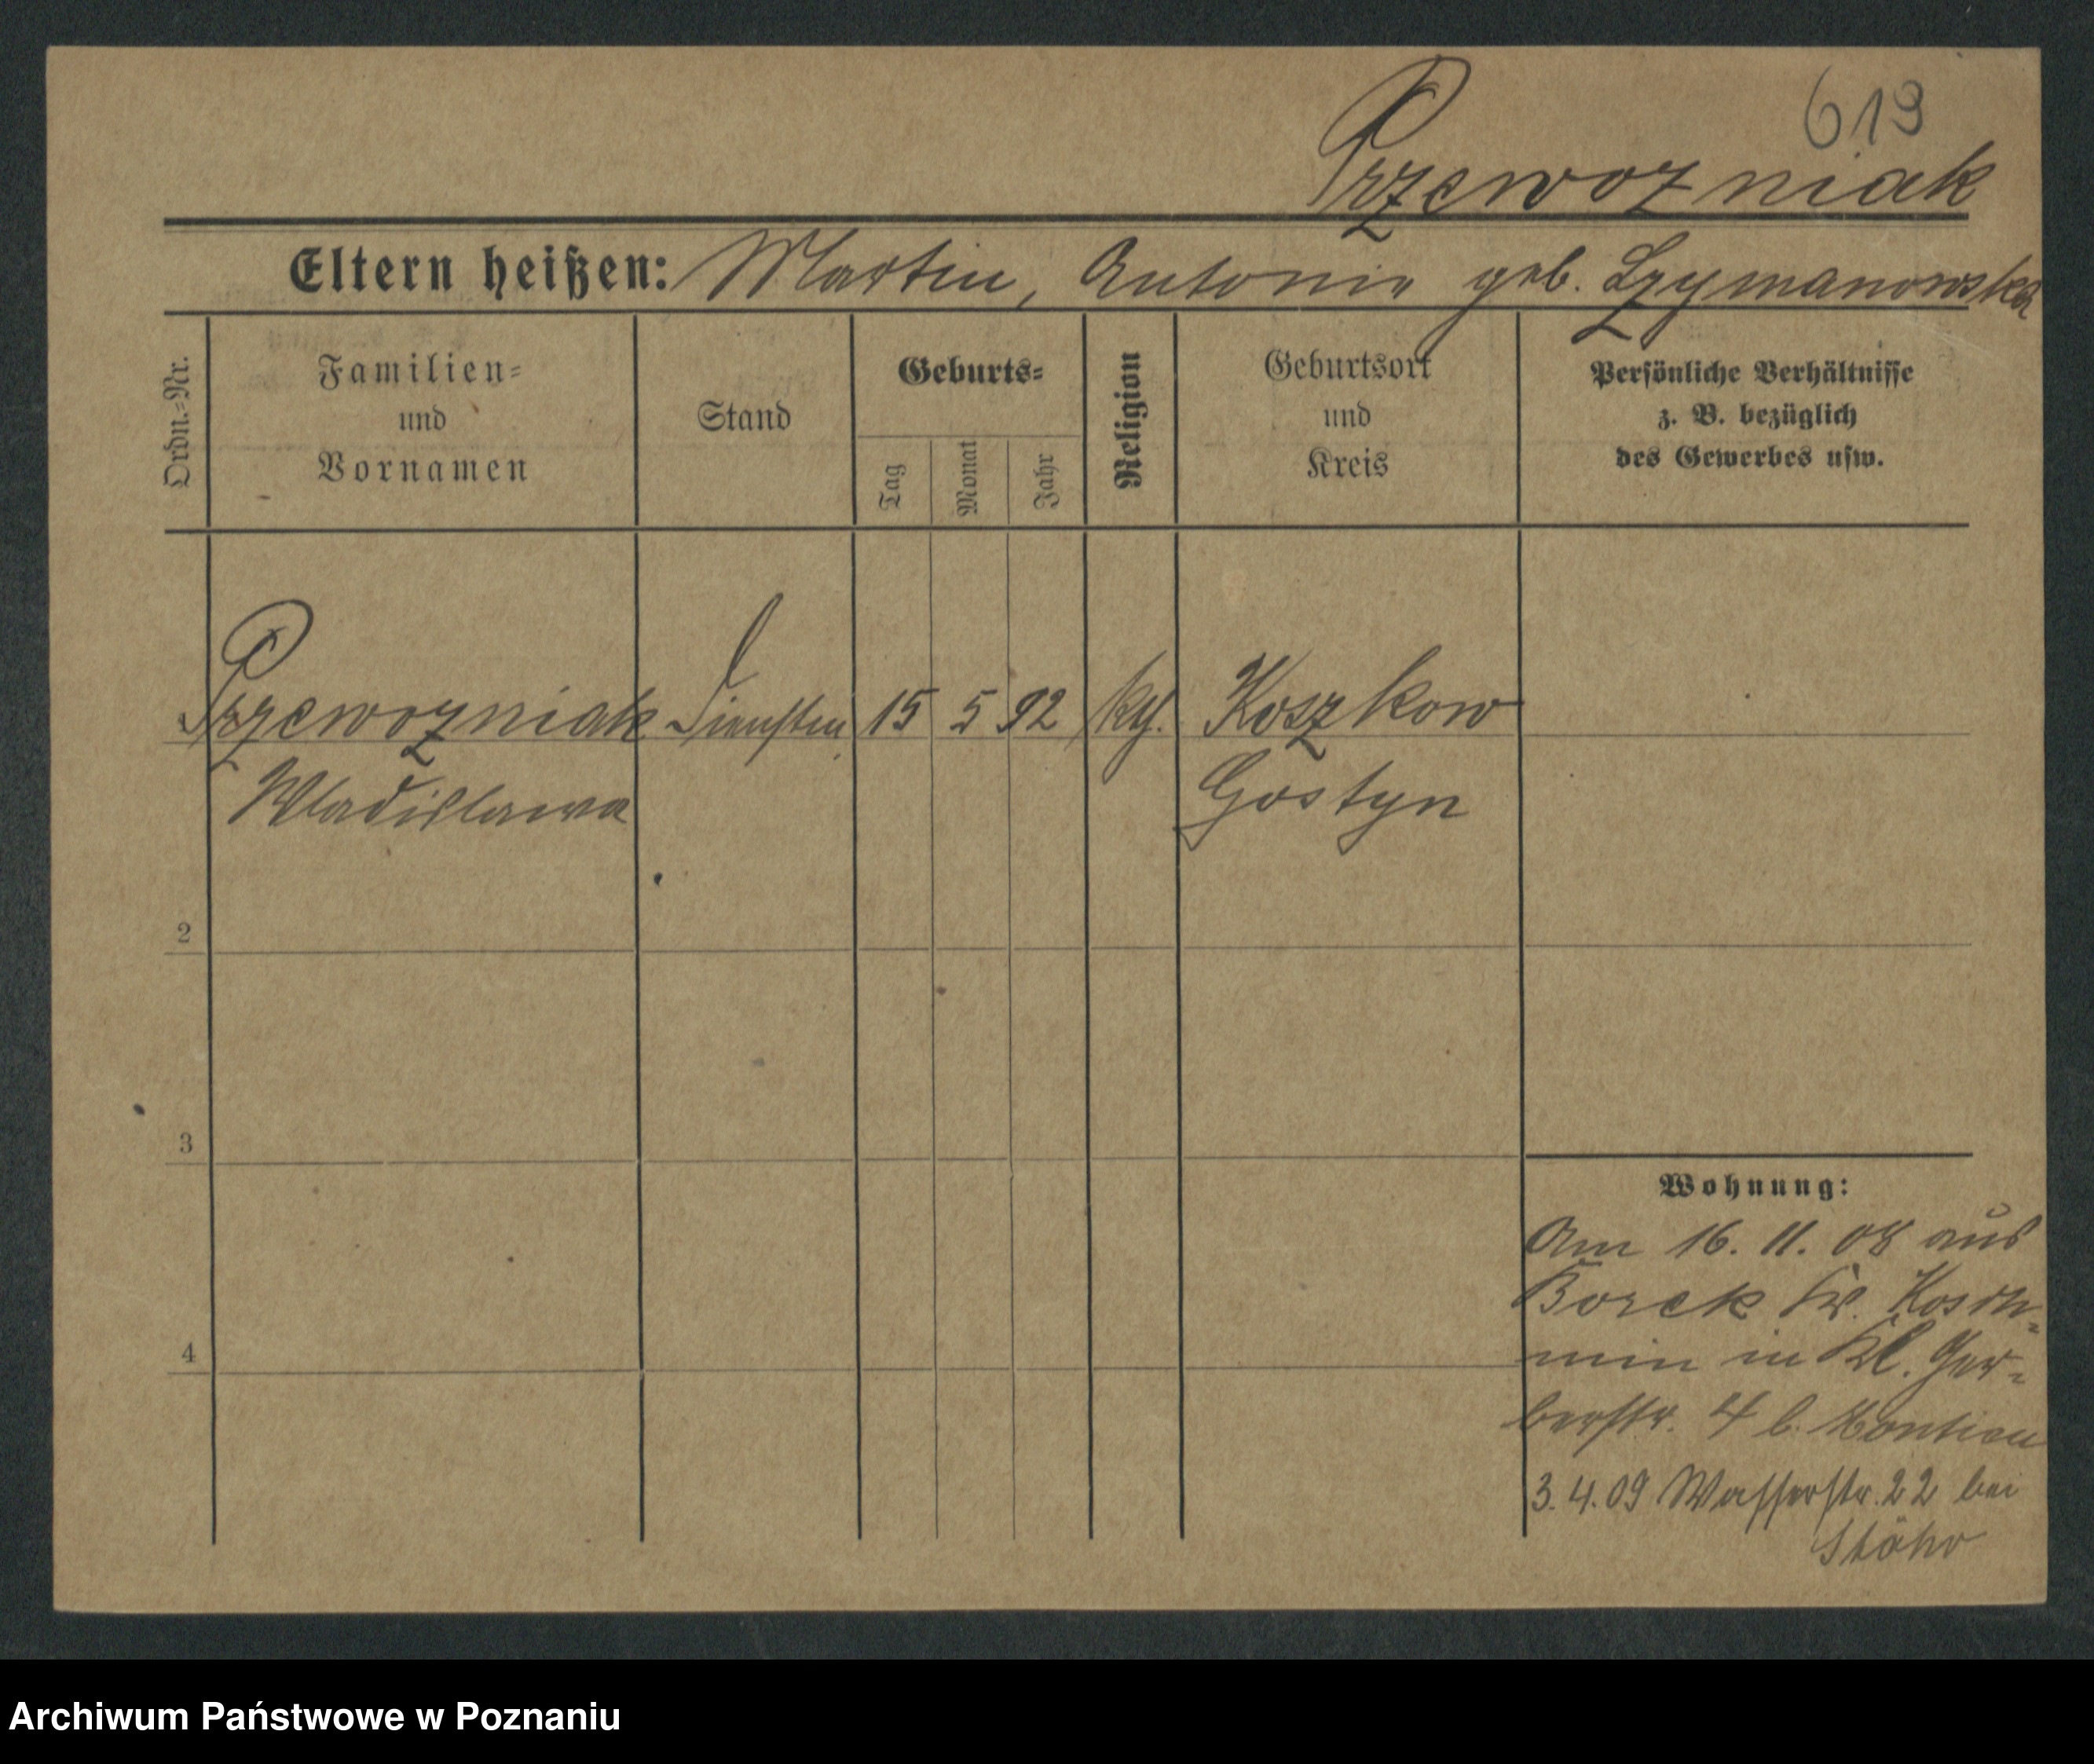 619
Przewozniak
Eltern heißen: Martin, Antonie geb. Szymanowska
Ordn.=Nr.
Familien=
und
Vornamen
Stand
Geburts=
Tag
Monat
Jahr
Religion
Geburtsort
und
Kreis
Persönliche Verhältnisse
z. B. bezüglich
des Gewerbes usw.
Przewozniak 15 5 92 kth. Koszkow
Wladislawa Gostyn
2
3
4
Wohnung:
Am 16. 11. 08 aus
Borek Kr. Kosch=
min in Kl. Ger=
berstr. 4 b.
3. 4. 09 Wasserstr. 22 bei
Stöhr
Archiwum Państwowe w Poznaniu